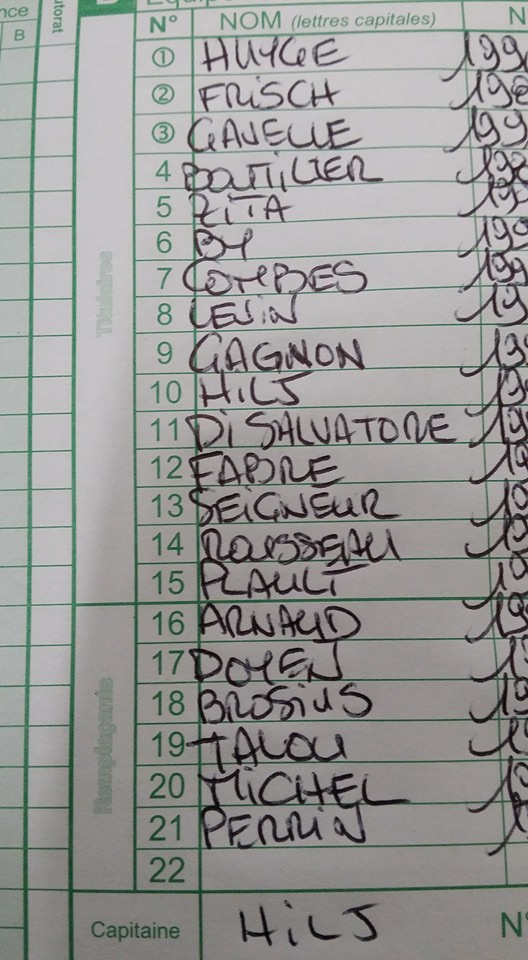 nce
B
torat
N° NOM (lettres capitales) N
① HUYGE 199
② FRiSCH 198
③ GAVELLE 199
4 BOUTiLIER 198
5 RiTA 19
6 BY 199
7 COMBES 199
8 LEViN 19
9 GAGNON 19
10 HiLS 19
11 Di SALVATORE 19
12 FABRE 19
13 SEiGNEUR 19
14 ROUSSEAU 19
15 PLAULT 19
Titulaires
16 ARNAUD 19
17 DOYEN 1
18 BROSiUS 19
19 TALOU 1
20 MiCHEL 19
21 PERRiN 1
22
Remplaçants
Capitaine HiLS N°